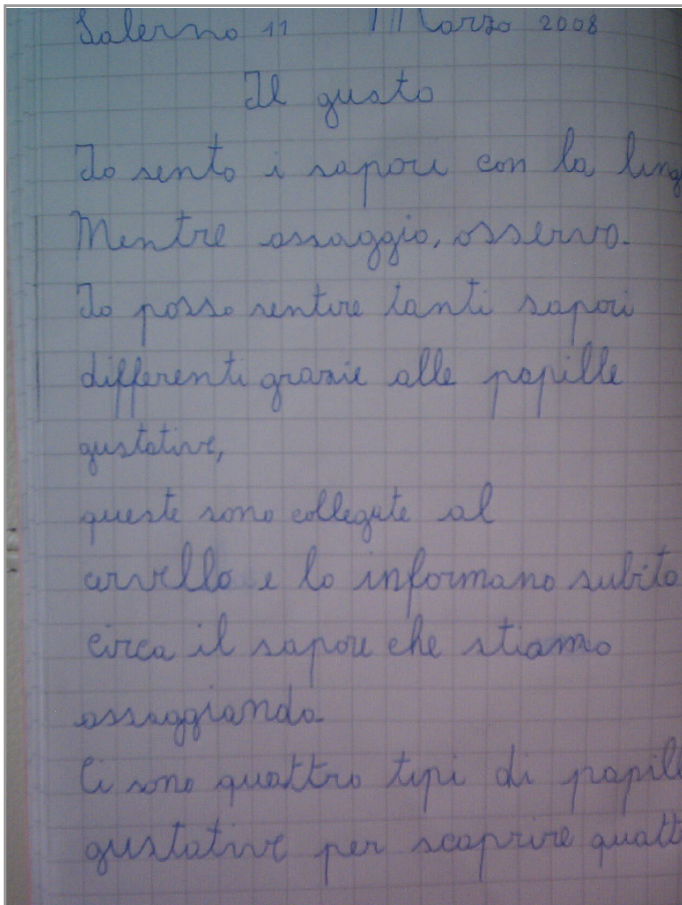 Salerno 11 Marzo 2008
Il gusto
Io sento i sapori con la ling
Mentre assaggio, osservo.
Io posso sentire tanti sapori
differenti grazie alle papille
gustative,
queste sono collegate al
cervello e lo informano subito
circa il sapore che stiamo
assaggiando
Ci sono quattro tipi di papill
gustative per scoprire quatt